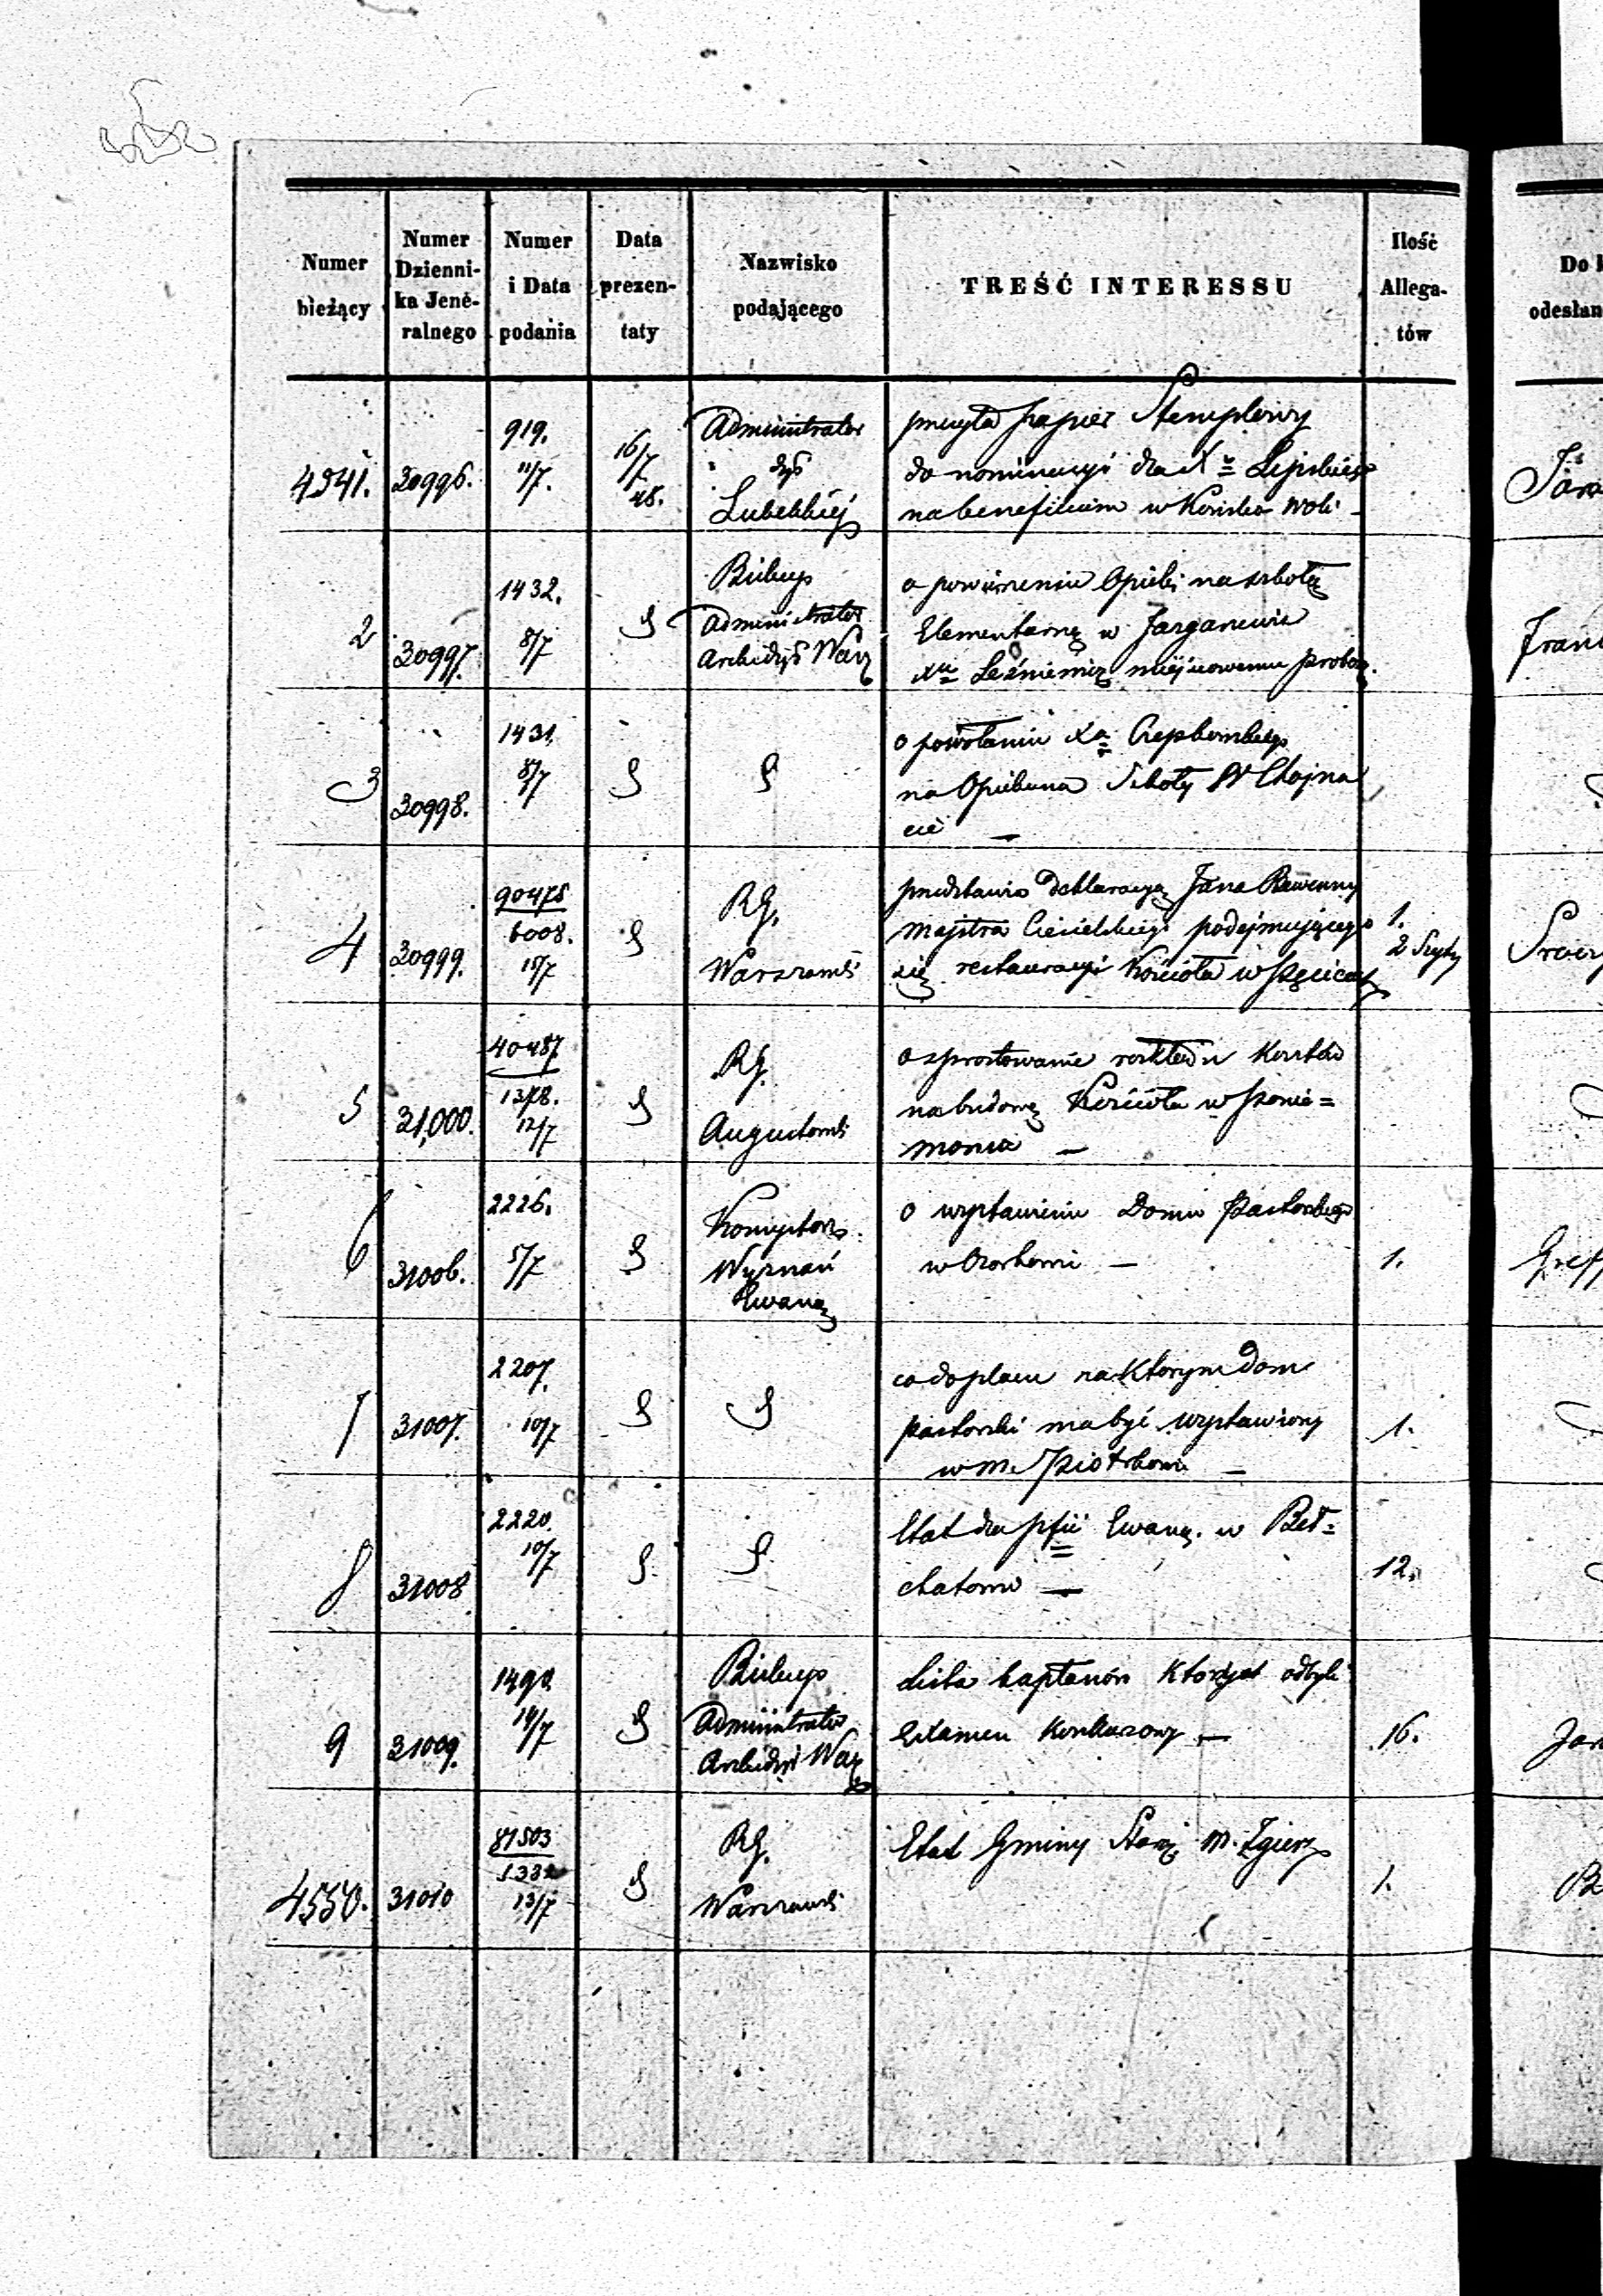 Numer bieżący
Numer Dzienni-ka Jene-ralnego
Numer i Data podania
Data prezen-taty
Nazwisko podającego
TREŚĆ INTERESSU
Ilość Allega-tów
Do
odesłan
4541.
30996.
919.
11/7.
16/7
48.
Administrator
dyś
Lubelskiéj
przysyła papier Stemplowy
do nominacyi dla X
na beneficium w Końsko Woli
2
30997.
1432.
8/7
Biskup
Administrator
Archidyś Warz
o powierzenie Opieki na szkołą
Elementarną w
miéjscowemu probosz.
3
30998.
1431.
8/7
o powołaniu Xa
na Opiekuna Szkoły W Chojna
cie
4
30999.
90475
6008.
15/7
RG.
Warszawski
przedstawia deklaracyą Jana
majstra Ciesielskiego podejmującego
się restauracyi Kościoła w
1.
2
5
31,000.
40487
1378.
12/7
RG.
Augustowski
o sprostowanie rozkładu Kosztów
na budowę Kościoła w Ponie=
monia
6
31006.
2226.
5/7
Konsystorz
Wyznań
Ewang
o wystawieniu Domu Pastorskiego
w Ozorkowi
1.
7
31007.
2207.
10/7
co do placu na Którym dom
pastorski ma być wystawiony
w m. Piotrkowi
1.
8
31008
2220.
10/7
Etat dla pfii Ewang. w Beł=
chatowie
12.
9
31009.
1490.
14/7
Biskup
Administrator
Archidyś Warz
Lista kapłanów Którzy odbyli
Examen Konkursowy
16.
4550.
31010
81503
5332
13/7
RG.
Warszawski
Etat Gminy m. Zgierz
1.